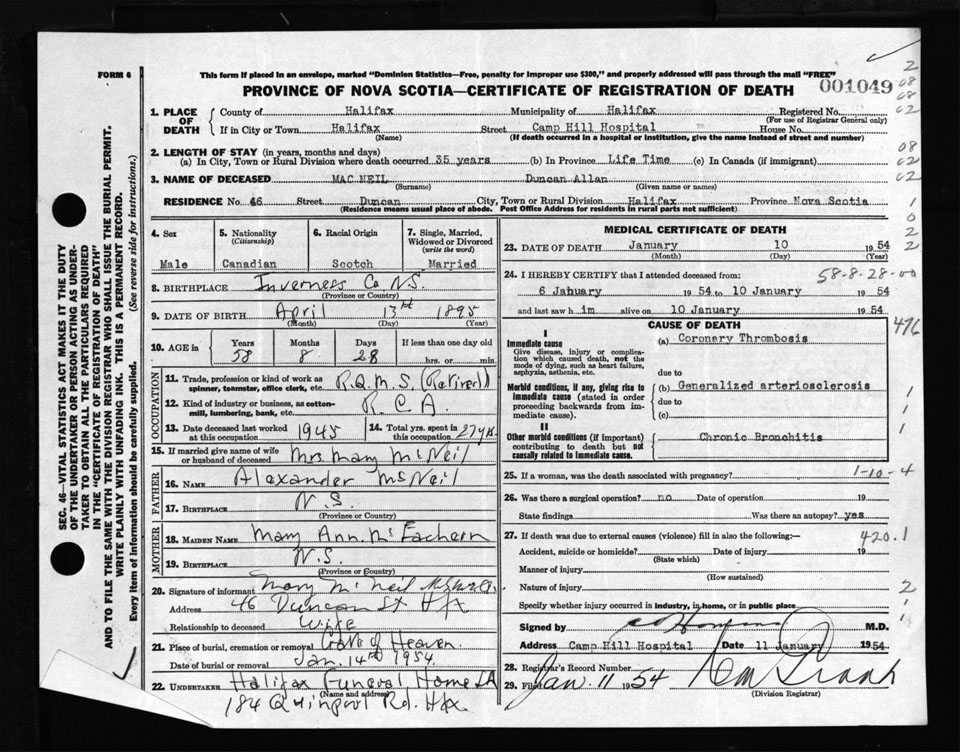 FORM 6
This form if placed in an envelope, marked "Dominion Statistics—Free, penalty for improper use $300," and properly addressed will pass through the mail "FREE"
PROVINCE OF NOVA SCOTIA—CERTIFICATE OF REGISTRATION OF DEATH
001049
2
08
08
02
1. PLACE OF DEATH
County of Halifax Municipality of Halifax Registered No.
(For use of Registrar General only)
If in City or Town Halifax Street Camp Hill Hospital House No.
(Name) (If death occurred in a hospital or institution, give the name instead of street and number)
2. LENGTH OF STAY (in years, months and days)
(a) In City, Town or Rural Division where death occurred 35 years (b) In Province Life Time (c) In Canada (if immigrant)
08
02
02
3. NAME OF DECEASED MAC NEIL Duncan Allan
(Surname) (Given name or names)
RESIDENCE No. 46 Street Duncan City, Town or Rural Division Halifax Province Nova Scotia
(Residence means usual place of abode. Post Office Address for residents in rural parts not sufficient)
1
0
2
2
4. Sex
Male
5. Nationality
(Citizenship)
Canadian
6. Racial Origin
Scotch
7. Single, Married, Widowed or Divorced
(write the word)
Married
8. BIRTHPLACE Inverness Co N.S.
(Province or Country)
9. DATE OF BIRTH April 13th 1895
(Month) (Day) (Year)
10. AGE in
Years Months Days If less than one day old
58 8 28 hrs. or min.
OCCUPATION
11. Trade, profession or kind of work as spinner, teamster, office clerk, etc. R.Q.M.S. (Retired)
12. Kind of industry or business, as cotton-mill, lumbering, bank, etc. R.C.A.
13. Date deceased last worked at this occupation 1945
14. Total yrs. spent in this occupation 27 yrs.
15. If married give name of wife or husband of deceased Mrs Mary McNeil
FATHER
16. NAME Alexander McNeil
17. BIRTHPLACE N.S.
(Province or Country)
MOTHER
18. MAIDEN NAME Mary Ann McEachern
19. BIRTHPLACE N.S.
(Province or Country)
20. Signature of informant Mary McNeil
Address 46 Duncan St Hfx
Relationship to deceased Wife
21. Place of burial, cremation or removal Gate of Heaven
Date of burial or removal Jan. 14th 1954.
22. UNDERTAKER Halifax Funeral Home
(Name and address)
184 Quinpool Rd. Hfx
MEDICAL CERTIFICATE OF DEATH
23. DATE OF DEATH January 10 1954
(Month) (Day) (Year)
24. I HEREBY CERTIFY that I attended deceased from:
58-8-28-00
6 Jahuary 1954 to 10 January 1954
and last saw him alive on 10 January 1954
CAUSE OF DEATH
476
I
Immediate cause
Give disease, injury or complication which caused death, not the mode of dying, such as heart failure, asphyxia, asthenia, etc.
(a) Coronary Thrombosis
due to
Morbid conditions, if any, giving rise to immediate cause (stated in order proceeding backwards from immediate cause).
(b) Generalized arteriosclerosis
due to
(c)
1
1
1
II
Other morbid conditions (if important) contributing to death but not causally related to immediate cause.
Chronic Bronchitis
25. If a woman, was the death associated with pregnancy?
1-10-4
26. Was there a surgical operation? no Date of operation 19
State findings Was there an autopsy? yes
27. If death was due to external causes (violence) fill in also the following:—
420.1
Accident, suicide or homicide? Date of injury 19
(State which)
Manner of injury
(How sustained)
Nature of injury
2
1
Specify whether injury occurred in industry, in home, or in public place
Signed by M.D.
Address Camp Hill Hospital Date 11 January 1954
28. Registrar's Record Number
29. Filed Jan 11 1954
(Division Registrar)
SEC. 46—VITAL STATISTICS ACT MAKES IT THE DUTY OF THE UNDERTAKER OR PERSON ACTING AS UNDERTAKER TO OBTAIN ALL THE PARTICULARS REQUIRED IN THE "CERTIFICATE OF REGISTRATION OF DEATH" AND TO FILE THE SAME WITH THE DIVISION REGISTRAR WHO SHALL ISSUE THE BURIAL PERMIT.
WRITE PLAINLY WITH UNFADING INK. THIS IS A PERMANENT RECORD.
Every item of Information should be carefully supplied. (See reverse side for instructions.)